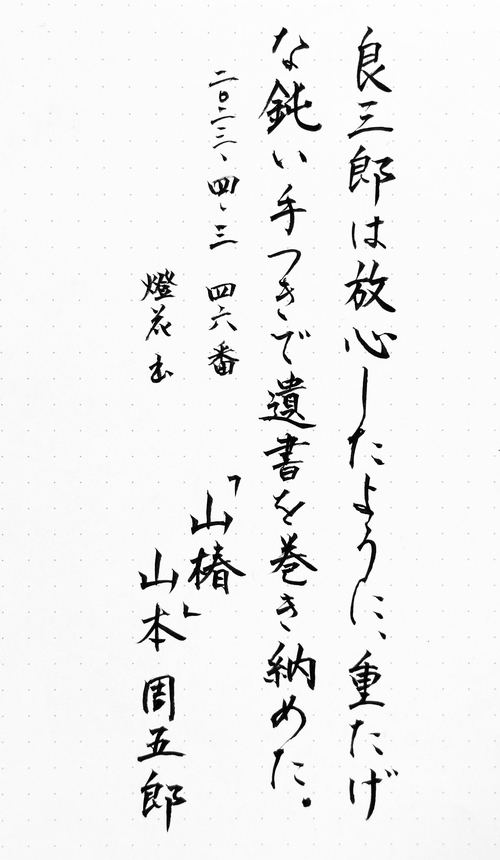 良三郎は放心したように、重たげ
な鈍い手つきで遺書を巻き納めた。
二〇二二、四、三 四六番
「山椿」
燈花
山本周五郎